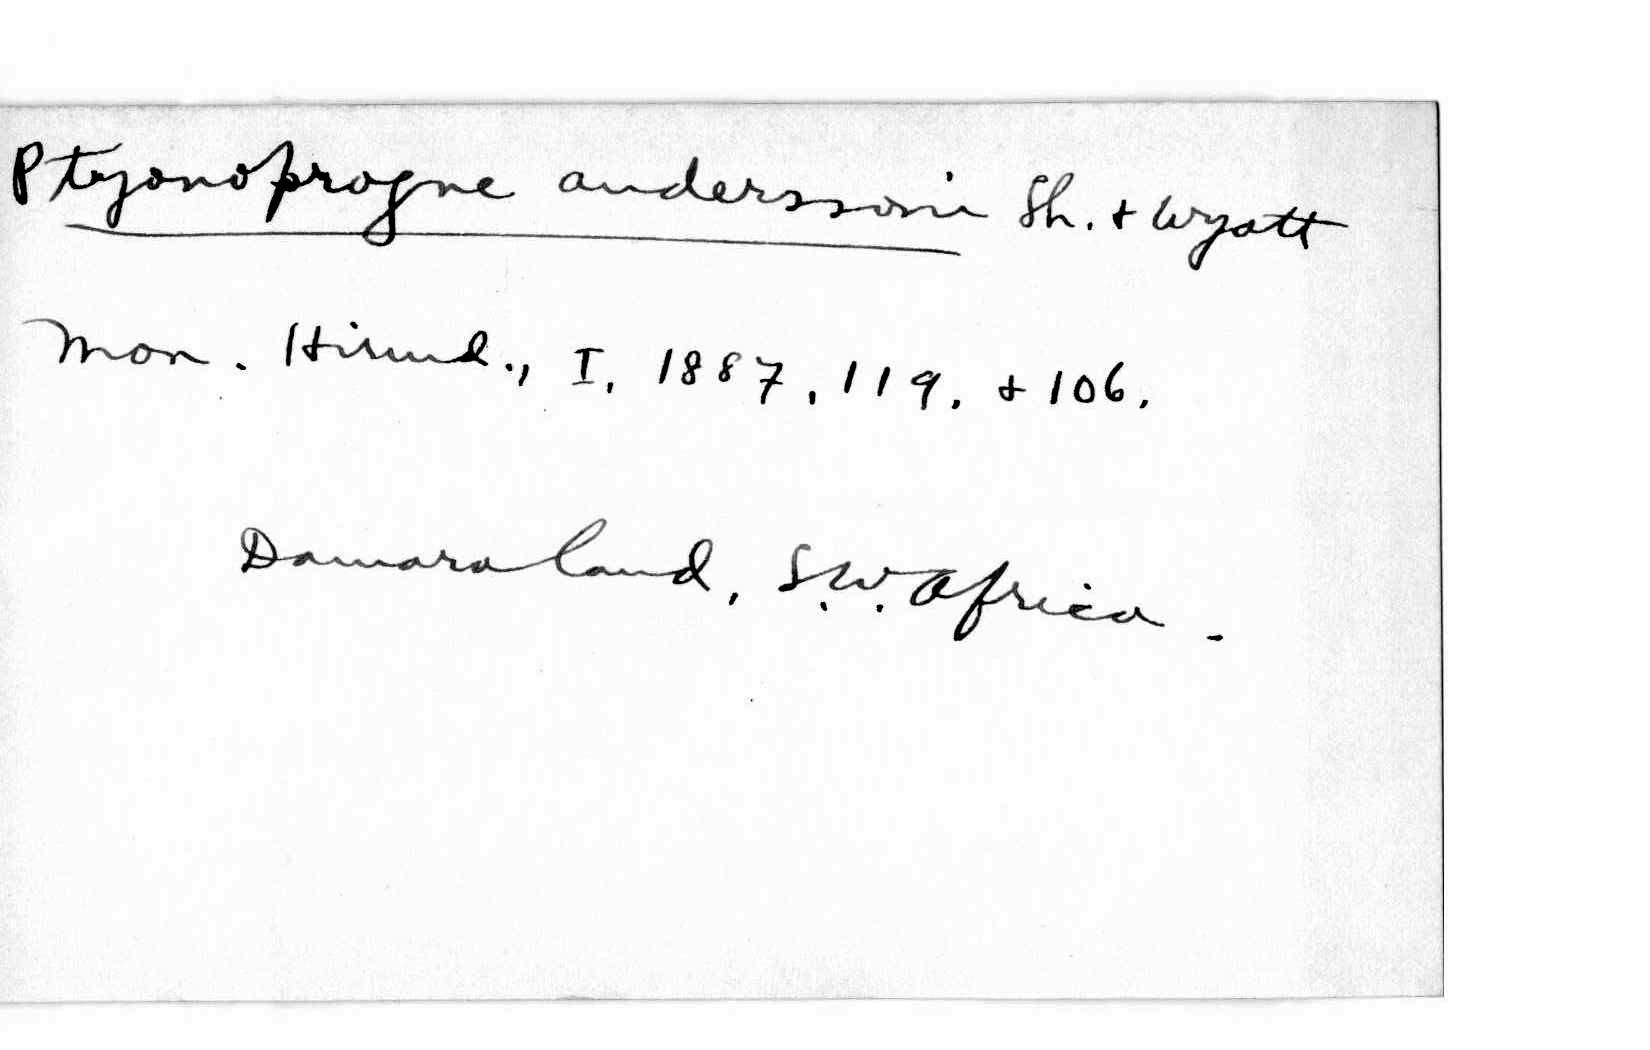 Ptyonoprogne anderssoni Sh. & Wyatt
Mon. Hirund., I, 1887, 119, & 106.
Damaraland, S.W. Africa.